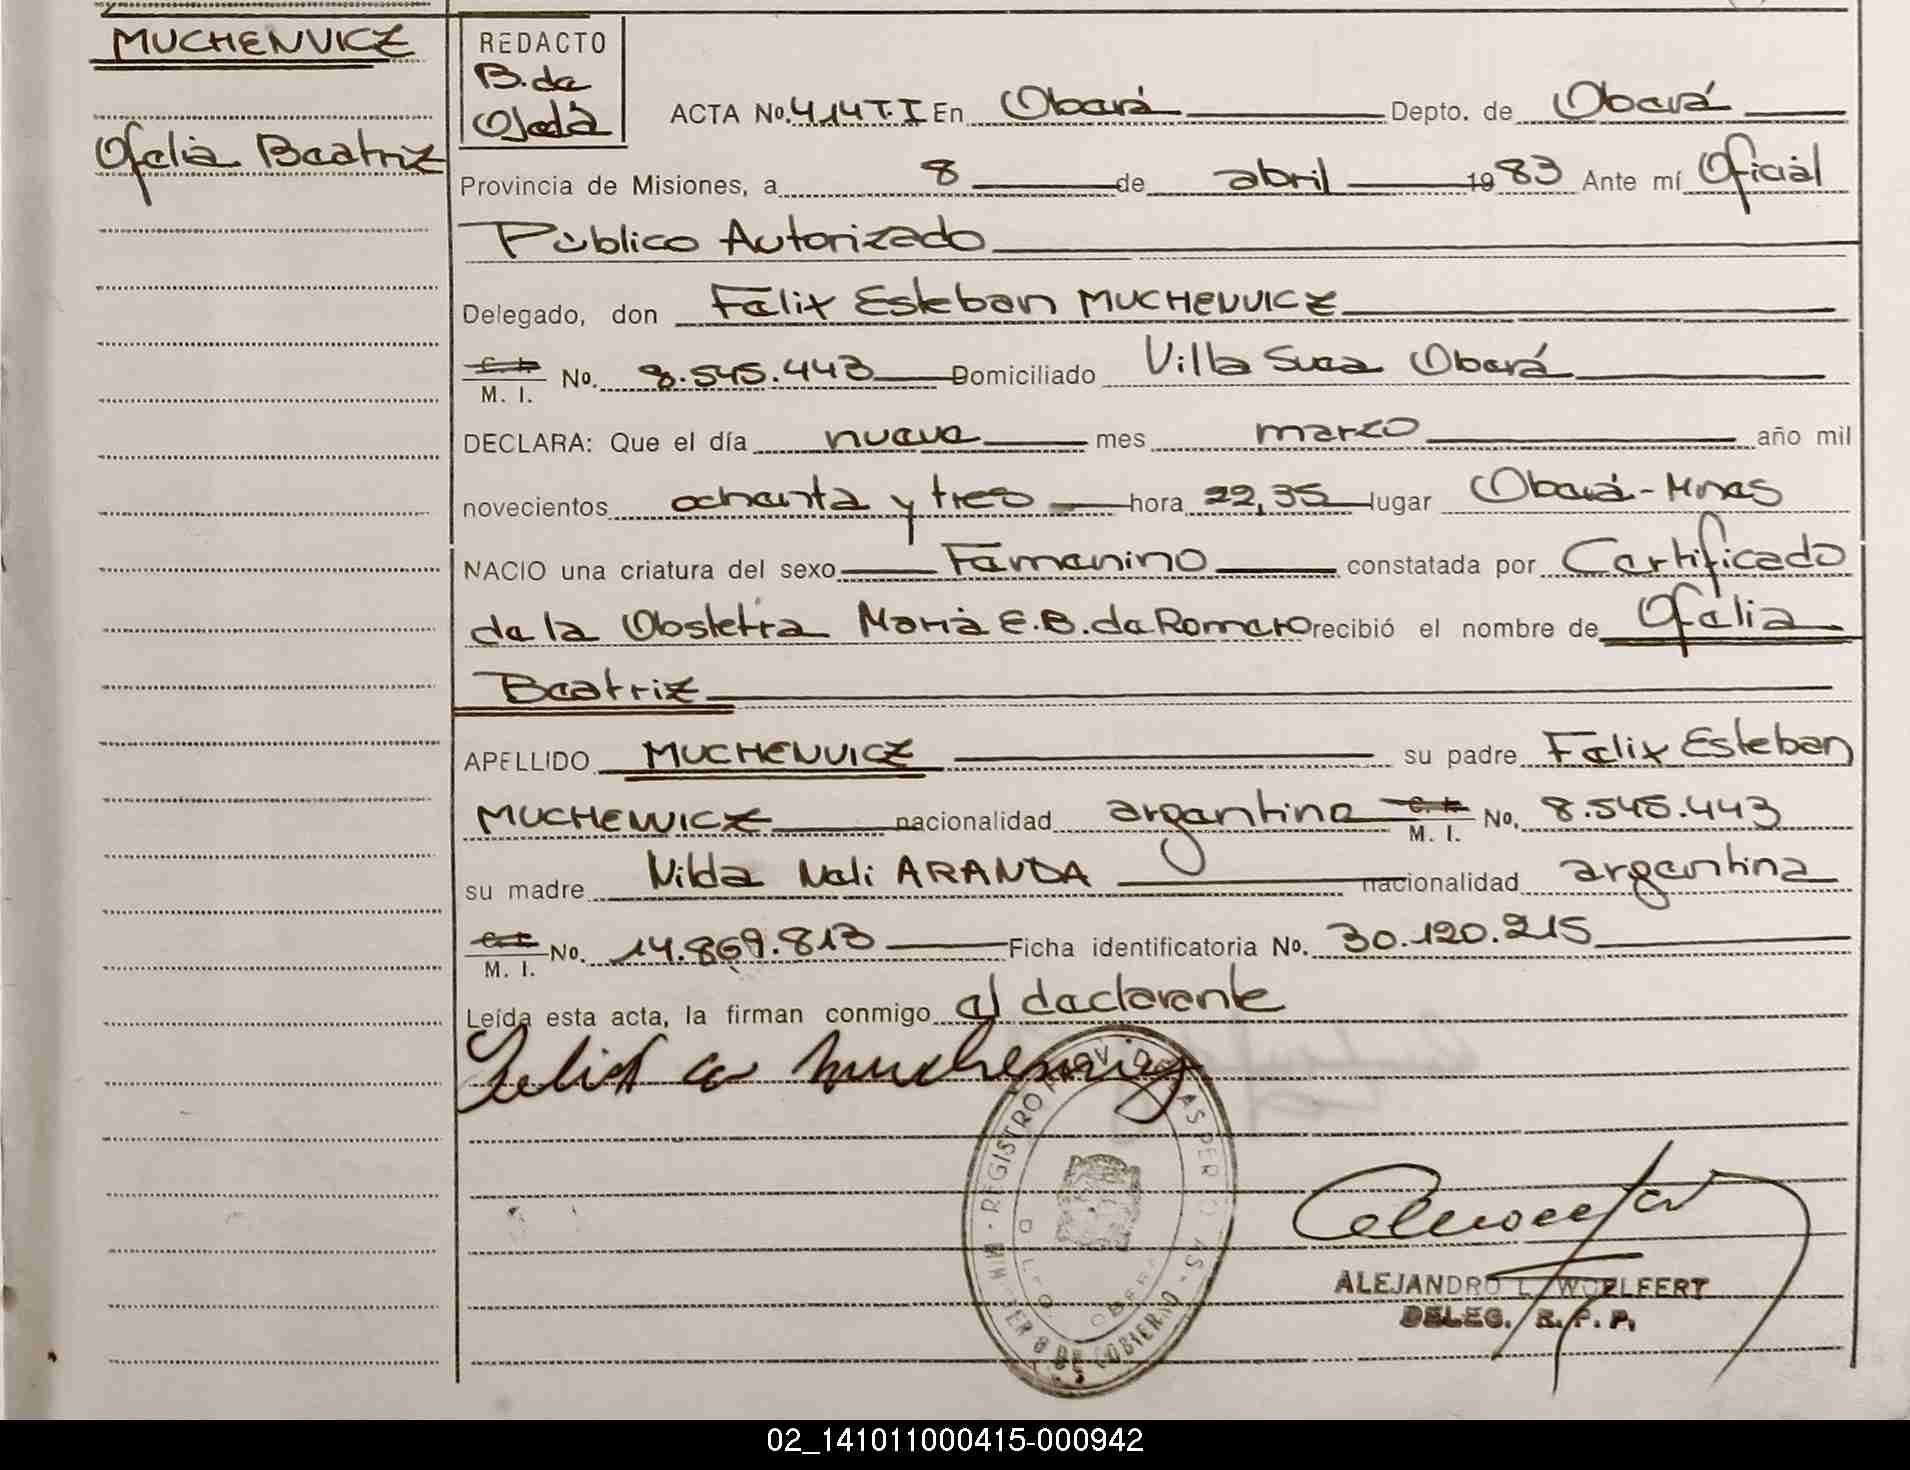 MUCHENVICZ
Ofelia Beatriz
REDACTO
B. de
Ojeda
ACTA No. 414 T.I En Oberá Depto. de Oberá
Provincia de Misiones, a 8 de abril 1983 Ante mí Oficial
Público Autorizado
Delegado, don Felix Esteban MUCHENVICZ
C. I.
M. I. No. 8.545.443 Domiciliado Villa Suea Oberá
DECLARA: Que el día nueve mes marzo año mil
novecientos ochenta y tres hora 22,35 lugar Oberá-Mnes
NACIO una criatura del sexo Femenino constatada por Certificado
de la Obstetra Maria E. B. de Romero recibió el nombre de Ofelia
Beatriz
APELLIDO MUCHENVICZ su padre Felix Esteban
MUCHENVICZ nacionalidad argentino C. I.
M. I. No. 8.545.443
su madre Nilda Neli ARANDA nacionalidad argentina
C. I.
M. I. No. 14.869.813 Ficha identificatoria No. 30.120.215
Leída esta acta, la firman conmigo el declarante
Felix E muchenvicz
REGISTRO PROV. DE LAS PERSONAS
MINISTERIO DE GOBIERNO
ALEJANDRO L. WOELFERT
DELEG. R. P. P.
02_141011000415-000942